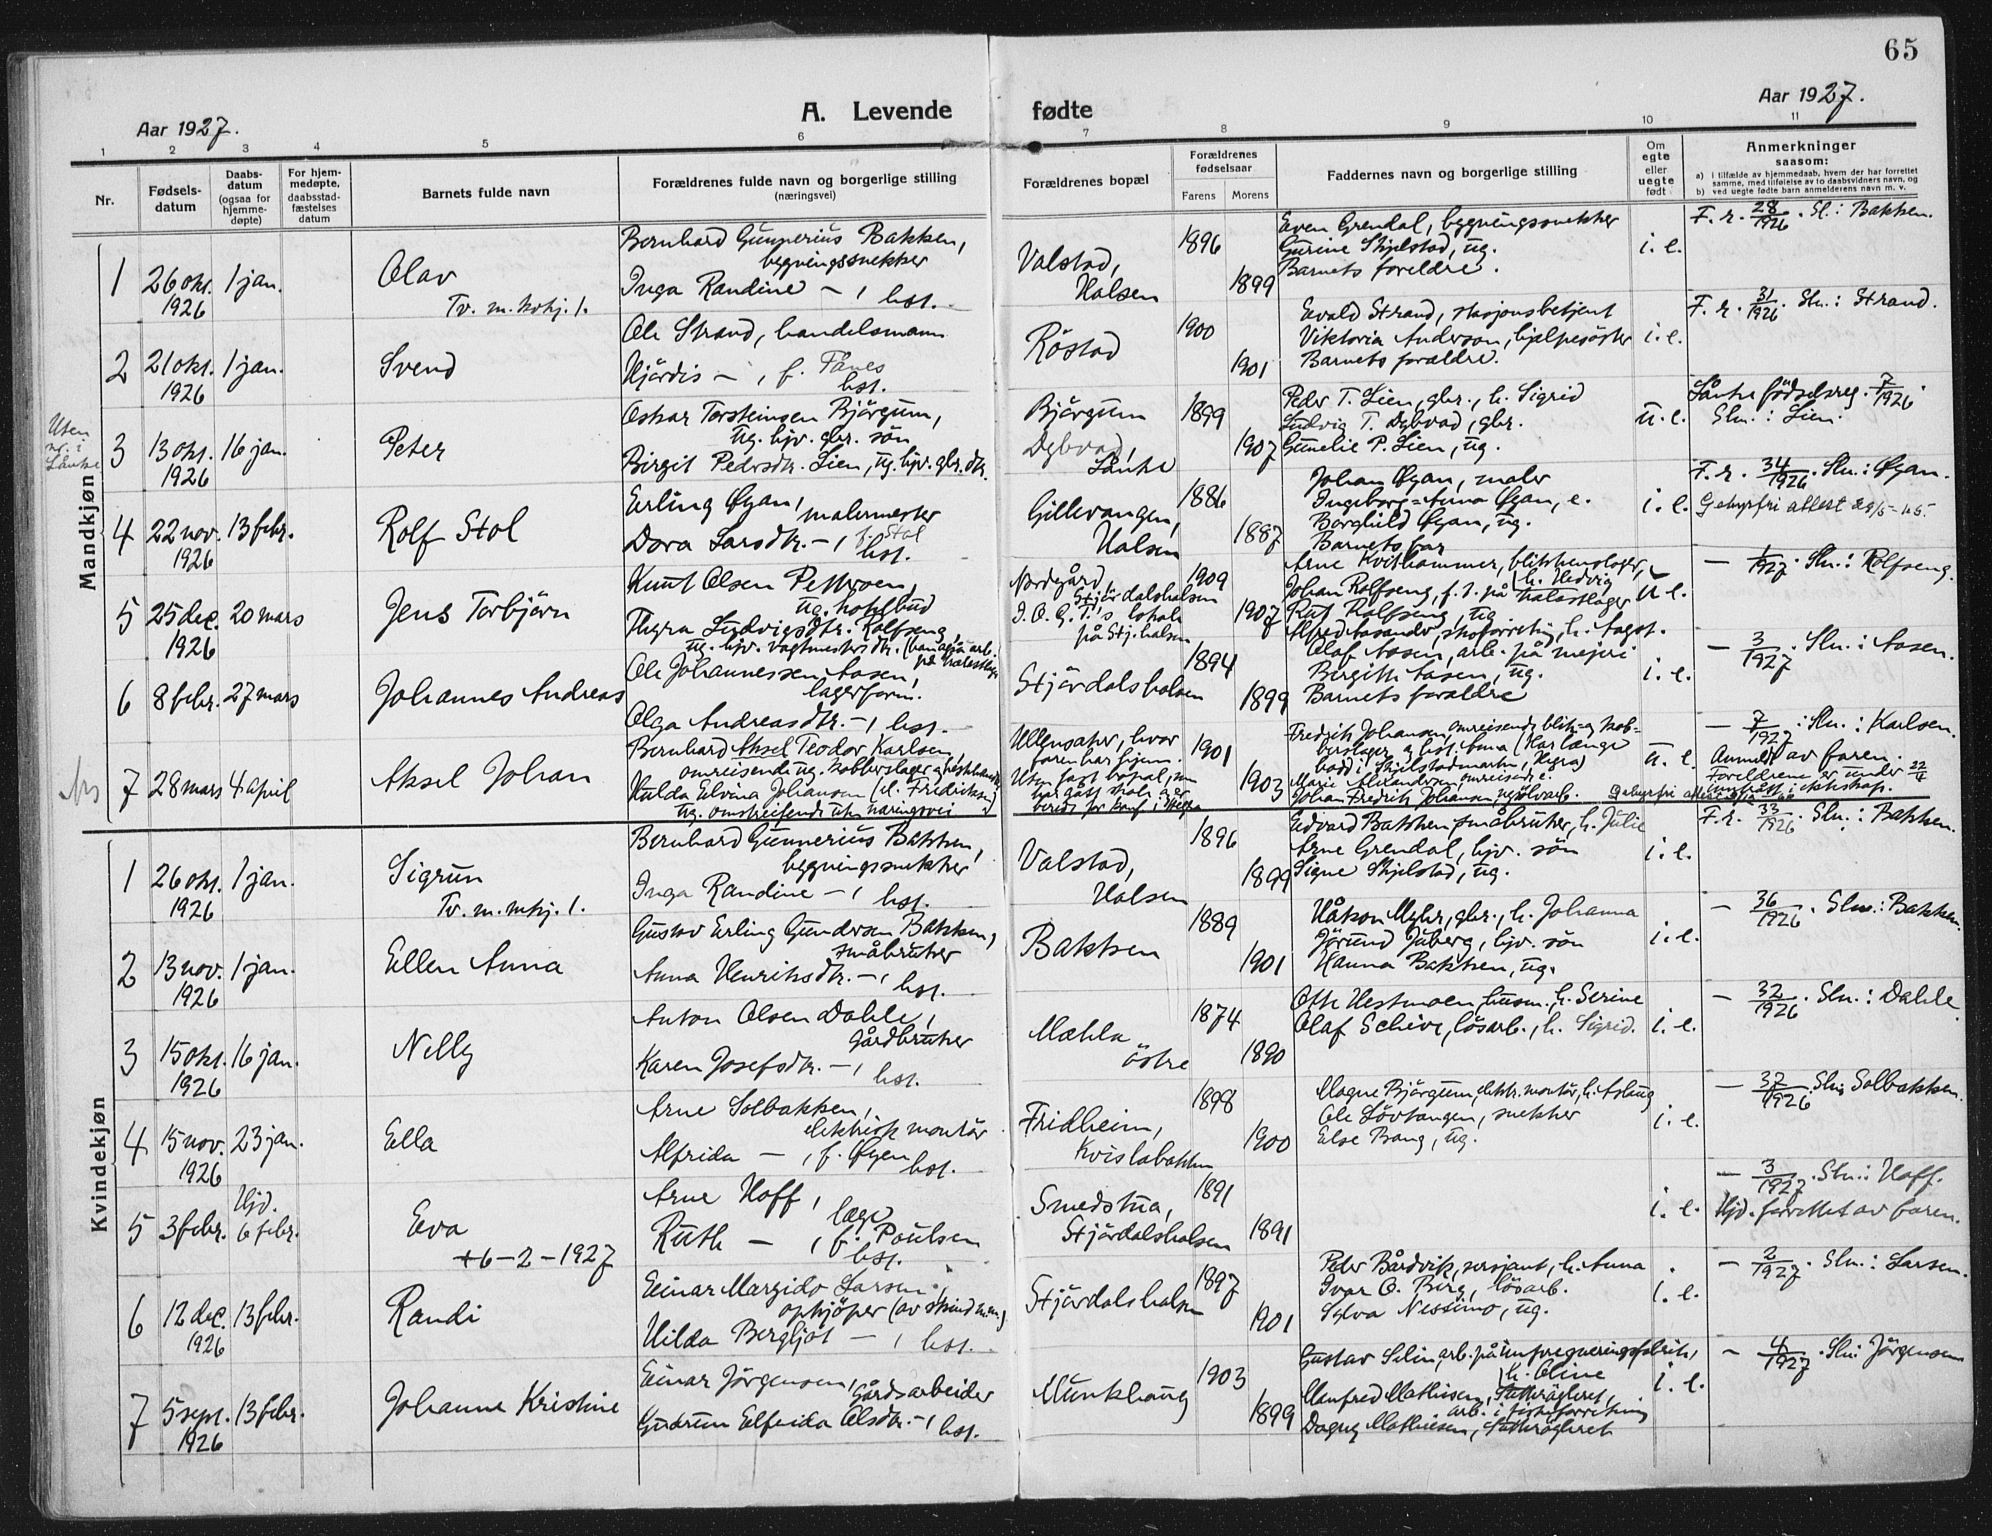 65
Aar 1927.
A. Levende fødte
Aar 1927.
1 2 3 4 5 6 7 8 9 10 11
Nr.
Fødselsdatum
Daabsdatum (ogsaa for hjemmedøpte)
For hjemmedøpte, daabsstadfæstelses datum
Barnets fulde navn
Forældrenes fulde navn og borgerlige stilling
(næringsvei)
Forældrenes bopæl
Forældrenes fødselsaar
Farens Morens
Faddernes navn og borgerlige stilling
Om egte eller uegte født
Anmerkninger
saasom:
a) i tilfælde av hjemmedaab, hvem der har forrettet samme, med tilføielse av to daabsvidners navn, og
b) ved uegte fødte barn anmelderens navn m. v.
Mandkjøn
1 26 okt. 1926 1 jan.
Olav
Tv. m. kvkj. 1.
Bernhard Gunnerius Bakken,
bygningssnekker
Inga Randine – , hst.
Valstad,
Halsen
1896
1899
Even Grendal, bygningssnekker
Gurine Skjelstad, ug.
Barnets foreldre.
i. e.
F. r. 28/1926. Sl.: Bakken.
2 21 okt. 1926 1 jan.
Svend
Ole Strand, handelsmann
Hjördis – , f. Fånes
hst.
Röstad
1900
1901
Evald Strand, stasjonsbetjent
Viktoria Anderson, hjelpesöster
Barnets forældre.
i. e.
F. r. 31/1926. Sln.: Strand.
Uten nr. i Lånke
3 13 okt. 1926 16 jan.
Peter
Oskar Torsteinsen Bjørgum,
ug. hjv. gbr. sön
Birgit Pedersdtr. Lien, ug. hjv. gbr. dtr.
Bjørgum
Dybvad,
Lånke
1899
1907
Peder T. Lien, gbr., h. Sigrid
Ludvig T. Dybvad, gbr.
Gunelie P. Lien, ug.
u. e.
Lånke fødselsreg. 7/1926.
Sln.: Lien.
4 22 nov. 1926 13 febr.
Rolf Stol
Erling Øyan,
malermester
Dora Larsdtr. – , f. Stol
hst.
Gillevangen,
Halsen
1886
1887
Johan Øyan, maler
Ingeborg Anna Øyan, e.
Borghild Øyan, ug.
Barnets far
i. e.
F. r. 34/1926. Sln.: Øyan.
Gebyrfri attest 29/5-45.
5 25 dec. 1926 20 mars
Jens Torbjörn
Knut Olsen Pettersen,
ug. hotelbud
Thyra Ludvigsdtr. Rolfseng,
ug. hjv. vagtmestersdtr.
Nordgård,
Stjördalshalsen
I. O. G. T.'s lokale
på Stj. halsen
1909
1907
Arne Kvithammer, blikkenslager,
h. Hedvig
Johan Rolfseng,
Rut Rolfseng, ug.
Alfred Aasando, skoforretning, h. Aagot.
u. e.
– 1/1927. Sln.: Rolfseng.
6 8 febr. 27 mars
Johannes Andreas
Ole Johannessen Aasen,
lagerform.
Olga Andreasdtr. – , hst.
Stjördalshalsen
1894
1899
Olaf Aasen, arb. på mejeri
Bergitte Aasen, ug.
Barnets forældre
i. e.
– 3/1927. Sln.: Aasen.
7 28 mars 4 april
Aksel Johan
Bernhard Aksel Teodor Karlsen,
omreisende ug. kobberslager og hestehandler
Hulda Elvina Johansen (el. Fredriksen)
ug. omstreifende uten næringsvei
Ullensaker, hvor
faren har hjem.
Uten fast bopæl,
1901
1903
Fredrik Johansen, omreisende blik- og kobberslager
Marie Alexandersen, omreisende e.
Johan Fredrik Johansen,
u. e.
– 7/1927: Sln.: Karlsen.
Anmeldt av faren.
Foreldrene er under 22/4
i ekteskap.
Kvindekjøn
1 26 okt. 1926 1 jan.
Sigrun
Tv. m. mkj. 1.
Bernhard Gunnerius Bakken,
bygningssnekker
Inga Randine – , hst.
Valstad,
Halsen
1896
1899
Edvard Bakken småbruker, h. Julie
Arne Grendal, hjv. sön
Signe Skjelstad, ug.
i. e.
F. r. 33/1926. Sln.: Bakken.
2 13 nov. 1926 1 jan.
Ellen Anna
Gustav Erling Gundersen Bakken,
småbruker
Anna Henriksdtr. – , hst.
Bakken
1889
1901
Håkon Myhr, gbr., h. Johanna
Jörund Juberg, hjv. sön
Hanna Bakken, ug.
i. e.
– 36/1926. Sln.: Bakken.
3 15 okt. 1926 16 jan.
Nelly
Anton Olsen Dahle,
gårdbruker
Karen Josefsdtr. – , hst.
Mæhla
östre
1874
1890
Otte Hestmoen, husm. h. Serine
Olaf Scheve, lösarb., h. Sigrid.
i. e.
– 32/1926. Sln.: Dahle.
4 15 nov. 1926 23 jan.
Ella
Arne Solbakken,
elektrisk montör
Alfrida – , f. Øyen
hst.
Fridheim,
Kvislabakken
1898
1900
Magne Bjørgum, elektr. montör, h. Aslaug
Ole Lövtangen, snekker
Else Bang, ug.
i. e.
– 37/1926. Sln. Solbakken.
5 3 febr. Hjd. 6 febr.
Eva
+ 6-2-1927
Arne Hoff,
læge
Ruth – , f. Poulsen
hst.
Smedstua,
Stjördalshalsen
1891
1891
i. e.
– 3/1927. Sln.: Hoff.
Hjd. forrettet av faren.
6 12 dec. 1926 13 febr.
Randi
Einar Margido Larsen,
opkjöper (av skind m.m.)
Hilda Bergljot – , hst.
Stjördalshalsen
1897
1901
Peder Bårdvik, sersjant, h. Anna
Ivar O. Berg, lösarb.
Sylva Nessimo, ug.
i. e.
– 2/1927. Sln.: Larsen.
7 5 sept. 1926 13 febr.
Johanne Kristine
Einar Jörgensen,
gårdsarbeider
Gudrun Elfrida Olsdtr. – , hst.
Munkhaug
1903
1899
Gustav Selin, arb. på impregneringsfabrik,
h. Oline
Manfred Mathisen, Sutterögleret,
arb. i fiskeforretning
Dagny Mathiesen, Sutterögleret
i. e.
– 4/1927. Sln. Jörgensen